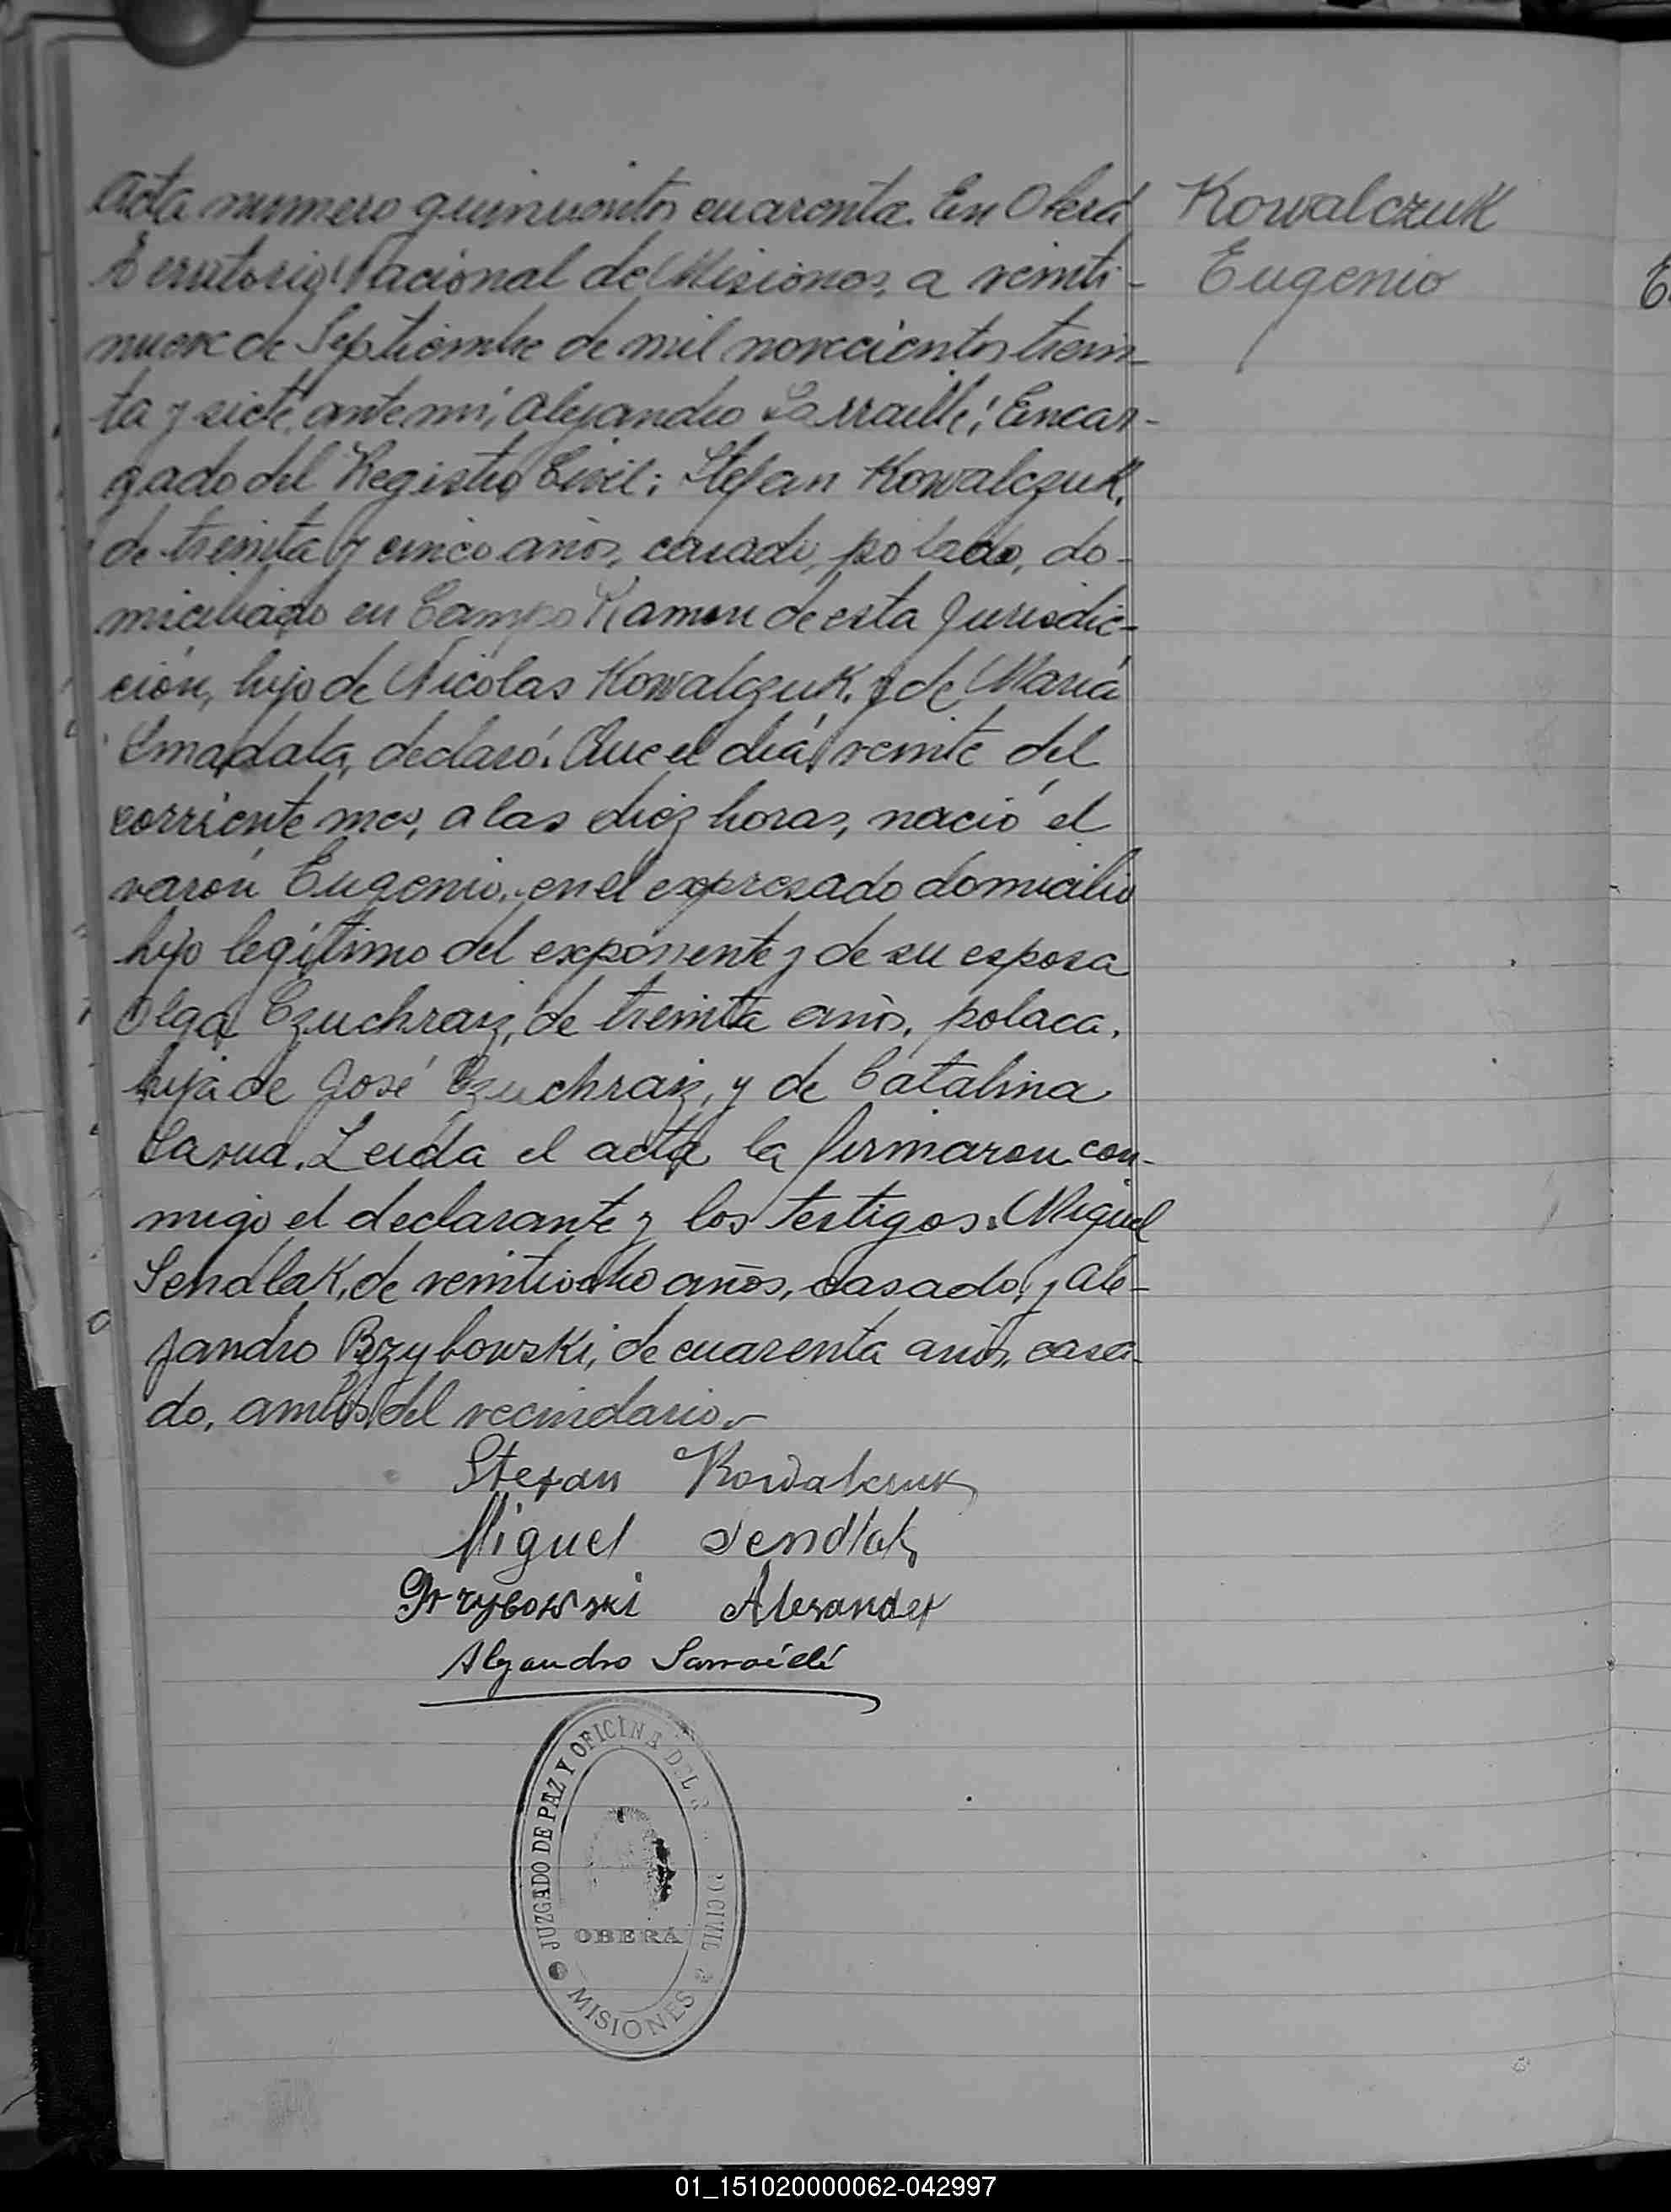 Acta numero quinientos cuarenta. En Oberá
Territorio Nacional de Misiones, a veinti-
nueve de Septiembre de mil novecientos trein-
ta y siete, ante mi, Alejandro Sarraillé, Encar-
gado del Registro Civil; Stefan Kowalczuk,
de treinta y cinco años, casado, polaco, do-
miciliado en Campo Ramon de esta Jurisdic-
ción, hijo de Nicolas Kowalczuk y de María
declaró: Que el día veinte del
corriente mes, a las diez horas, nació el
varón Eugenio, en el expresado domicilio
hijo legítimo del exponente y de su esposa
Olga Czuchraiz, de treinta años, polaca,
hija de José Czuchraiz, y de Catalina
Leida el acta la firmaron con-
migo el declarante y los testigos: Miguel
Sendlak, de veintiocho años, casado, y Ale-
jandro Bzybowski, de cuarenta años, casa-
do, ambos del vecindario.
Stefan Kowalczuk
Miguel Sendlak
Grzybowski Alexander
Alejandro Sarraillé
JUZGADO DE PAZ Y OFICINA DEL CIVIL
OBERÁ
MISIONES
Kowalczuk
Eugenio
01_151020000062-042997